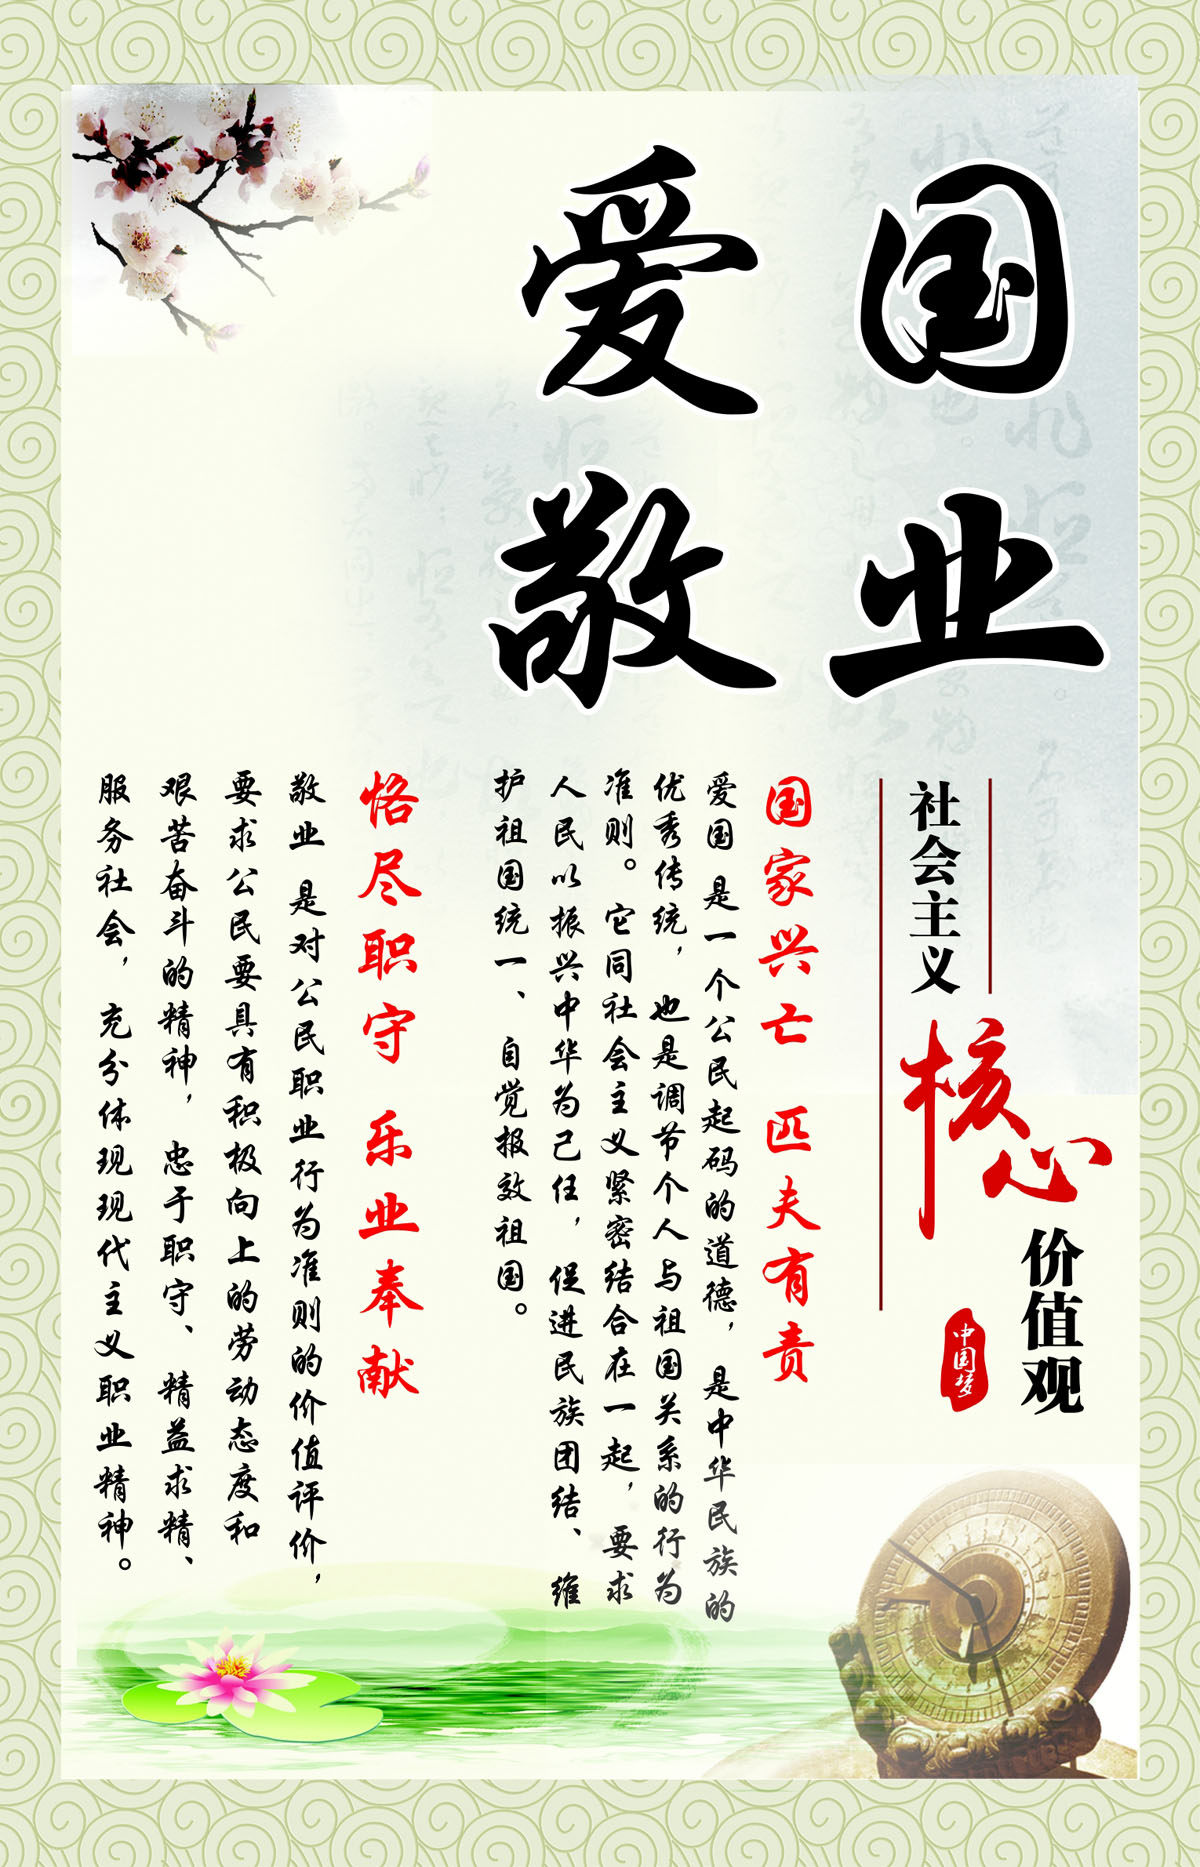 爱国
敬业
社会主义
核心
价值观
中国梦
国家兴亡 匹夫有责
爱国 是一个公民起码的道德，是中华民族的
优秀传统，也是调节个人与祖国关系的行为
准则。它同社会主义紧密结合在一起，要求
人民以振兴中华为己任，促进民族团结、维
护祖国统一、自觉报效祖国。
恪尽职守 乐业奉献
敬业 是对公民职业行为准则的价值评价，
要求公民要具有积极向上的劳动态度和
艰苦奋斗的精神，忠于职守、精益求精、
服务社会，充分体现现代主义职业精神。